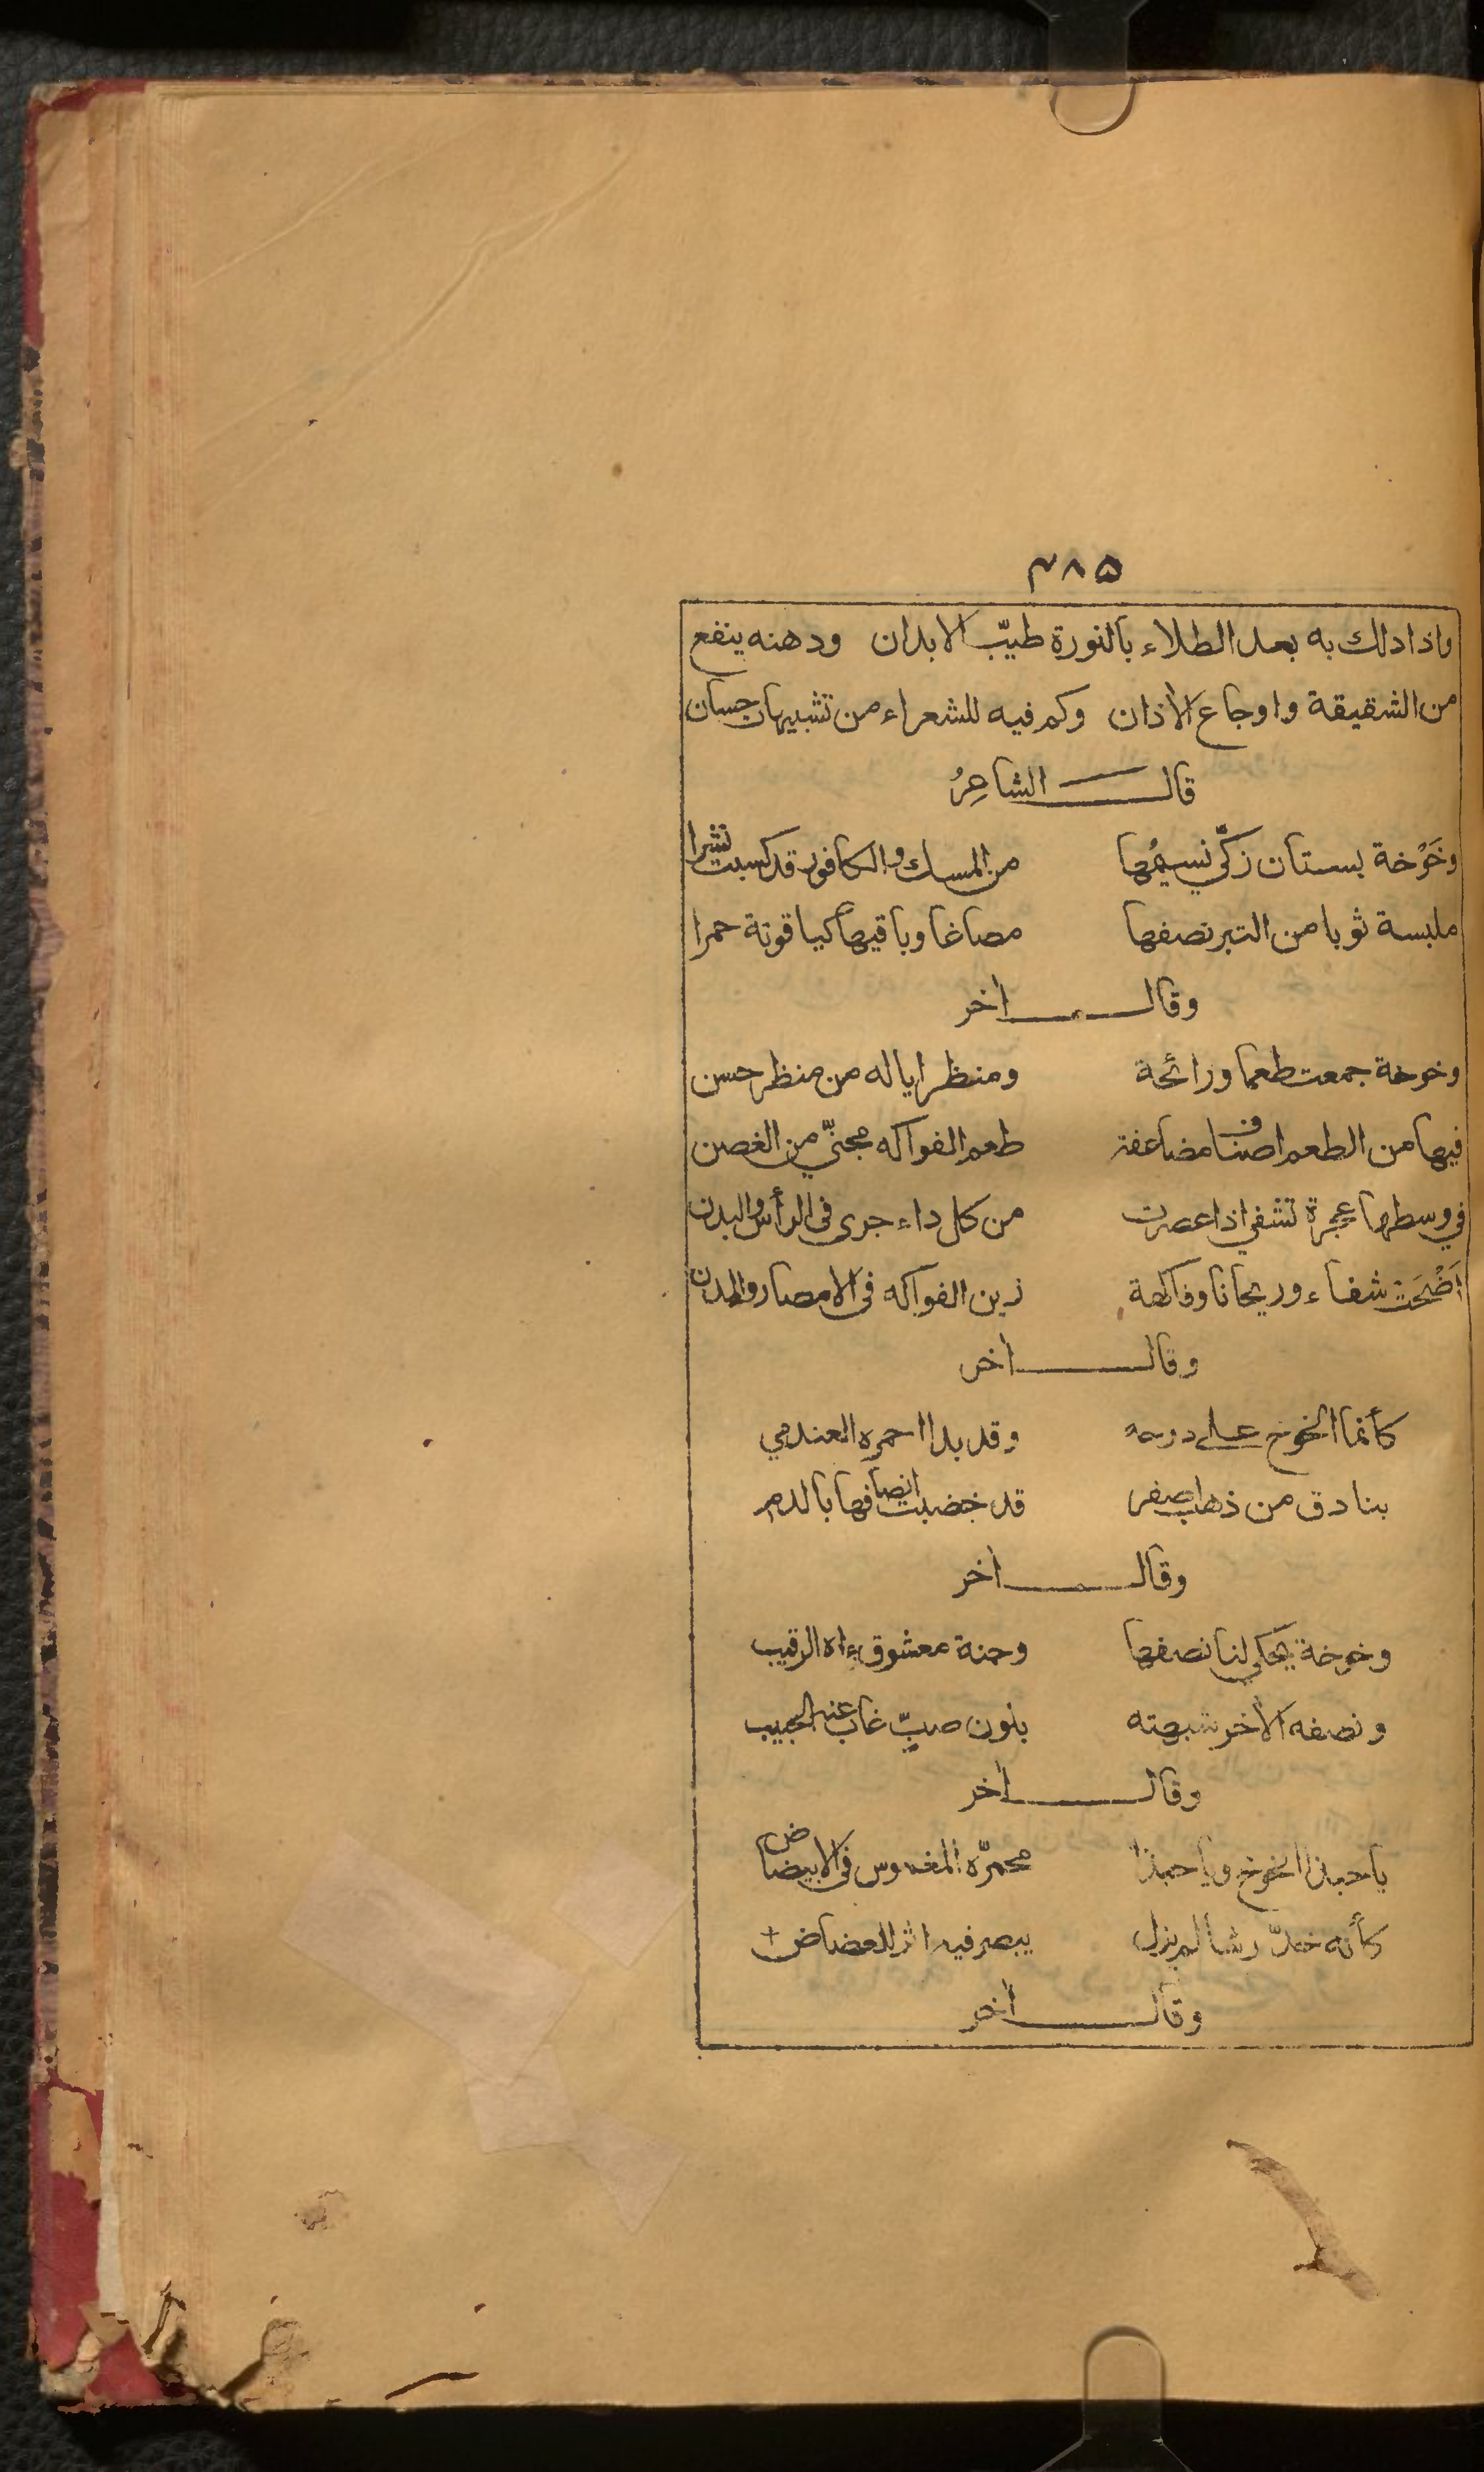 ٣٨٥
واذا دلك به بعد الطلاء بالنورة طيّب الابدان ودهنه ينفع
من الشقيقة واوجاع الأذان وكم فيه للشعراء من تشبيهات حسان
قال الشاعِرُ
وخَوْخة بستان زكّي نسيمُها من المسك والكافور قد كسبت نشرا
ملبسة ثوبا من التبر نصفها مصاغا وباقيها كياقوتة حمرا
وقال اخر
وخوخة جمعت طعما ورائحة ومنظرا ياله من منظر حسن
فيها من الطعم اصناف مضاعفة طعم الفواكه مجنيّ من الغصن
في وسطها عجرة تشفي اذا عصرت من كل داء جرى فى الرأس والبدن
أَضْحَت شفاء وريحانا وفاكهة زين الفواكه فى الامصار والمدن
وقال اخر
كأنما الخوخ على دوحه وقد بدا احمره العندمي
بنادق من ذهاب صفر قد خضبت انصافها بالدم
وقال اخر
وخوخة يحكي لنا نصفها وجنة معشوق راه الرقيب
ونصفه الأخر شبهته بلون صبٍّ غاب عنه الحبيب
وقال اخر
ياحبذا الخوخ وياحبذا محمرّه المغموس فى الابيضاض
كأنه خدّ رشا لم يزل يبصر فيه اثر للعضاض
وقال اخر